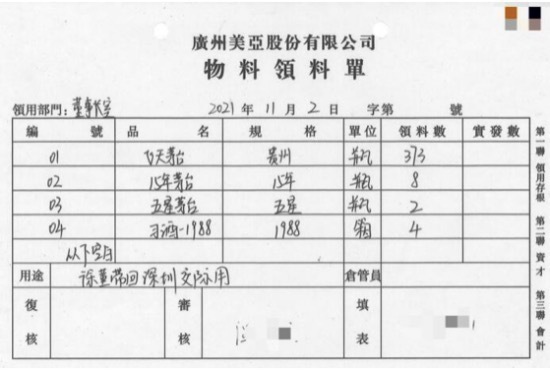 廣州美亞股份有限公司
物料領料單
領用部門：董事長室 2021年11月2日 字第 號
編 號 品 名 規 格 單位 領料數 實發數
01 飞天茅台 贵州 瓶 373
02 15年茅台 15年 瓶 8
03 五星茅台 五星 瓶 2
04 习酒-1988 1988 箱 4
从下空白
用途 徐董带回深圳交际用 倉管員
復核 審核 填表
第一聯 領用存根 第二聯 資才 第三聯 會計